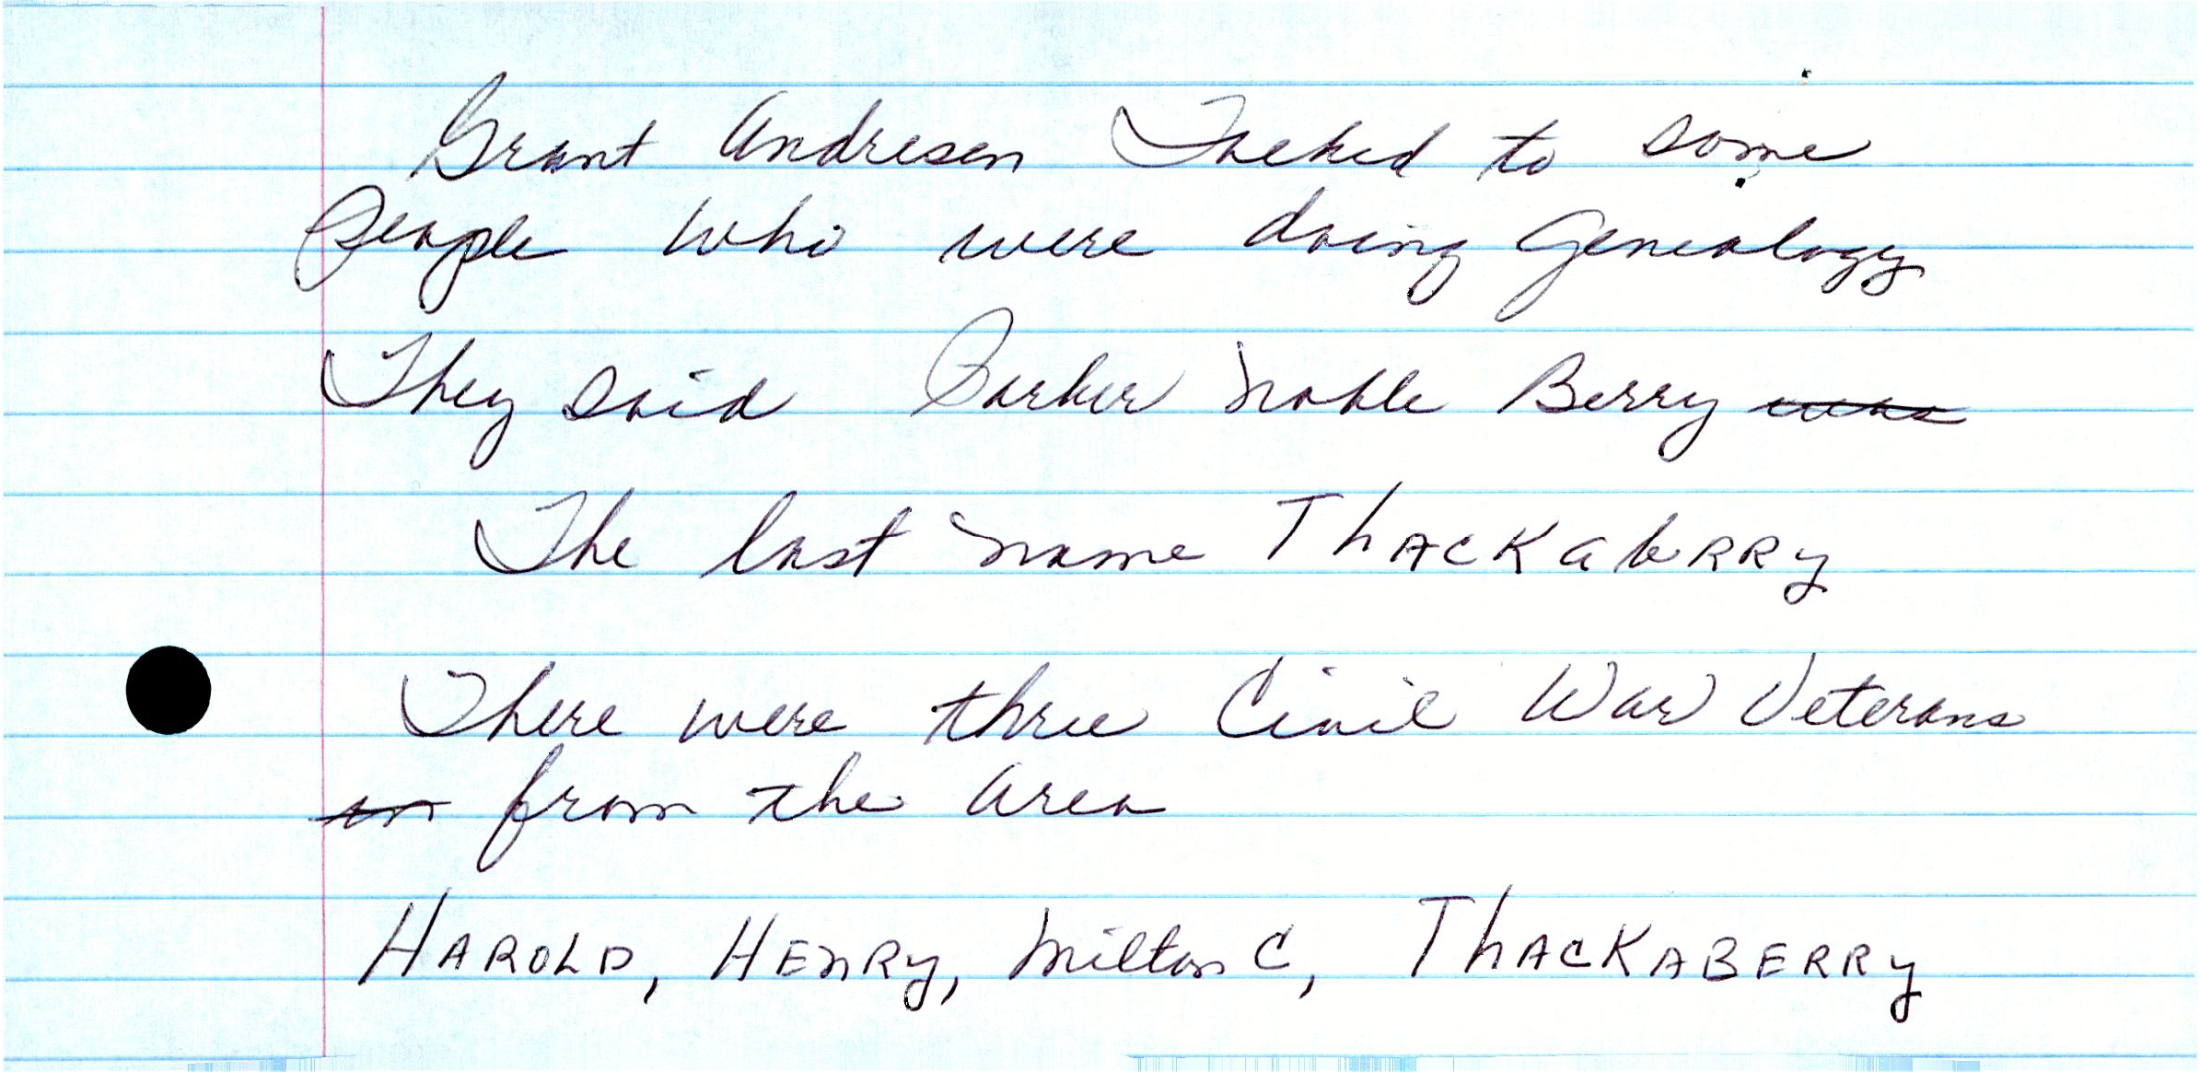 Grant Andresen Talked to some
People who were doing Genealogy
They said Parker Noble Berry was
The last name THACKabeRRy
There were three Civil War Veterans
from the area
HAROLD, HENRy, Milton C, THACKABERRy